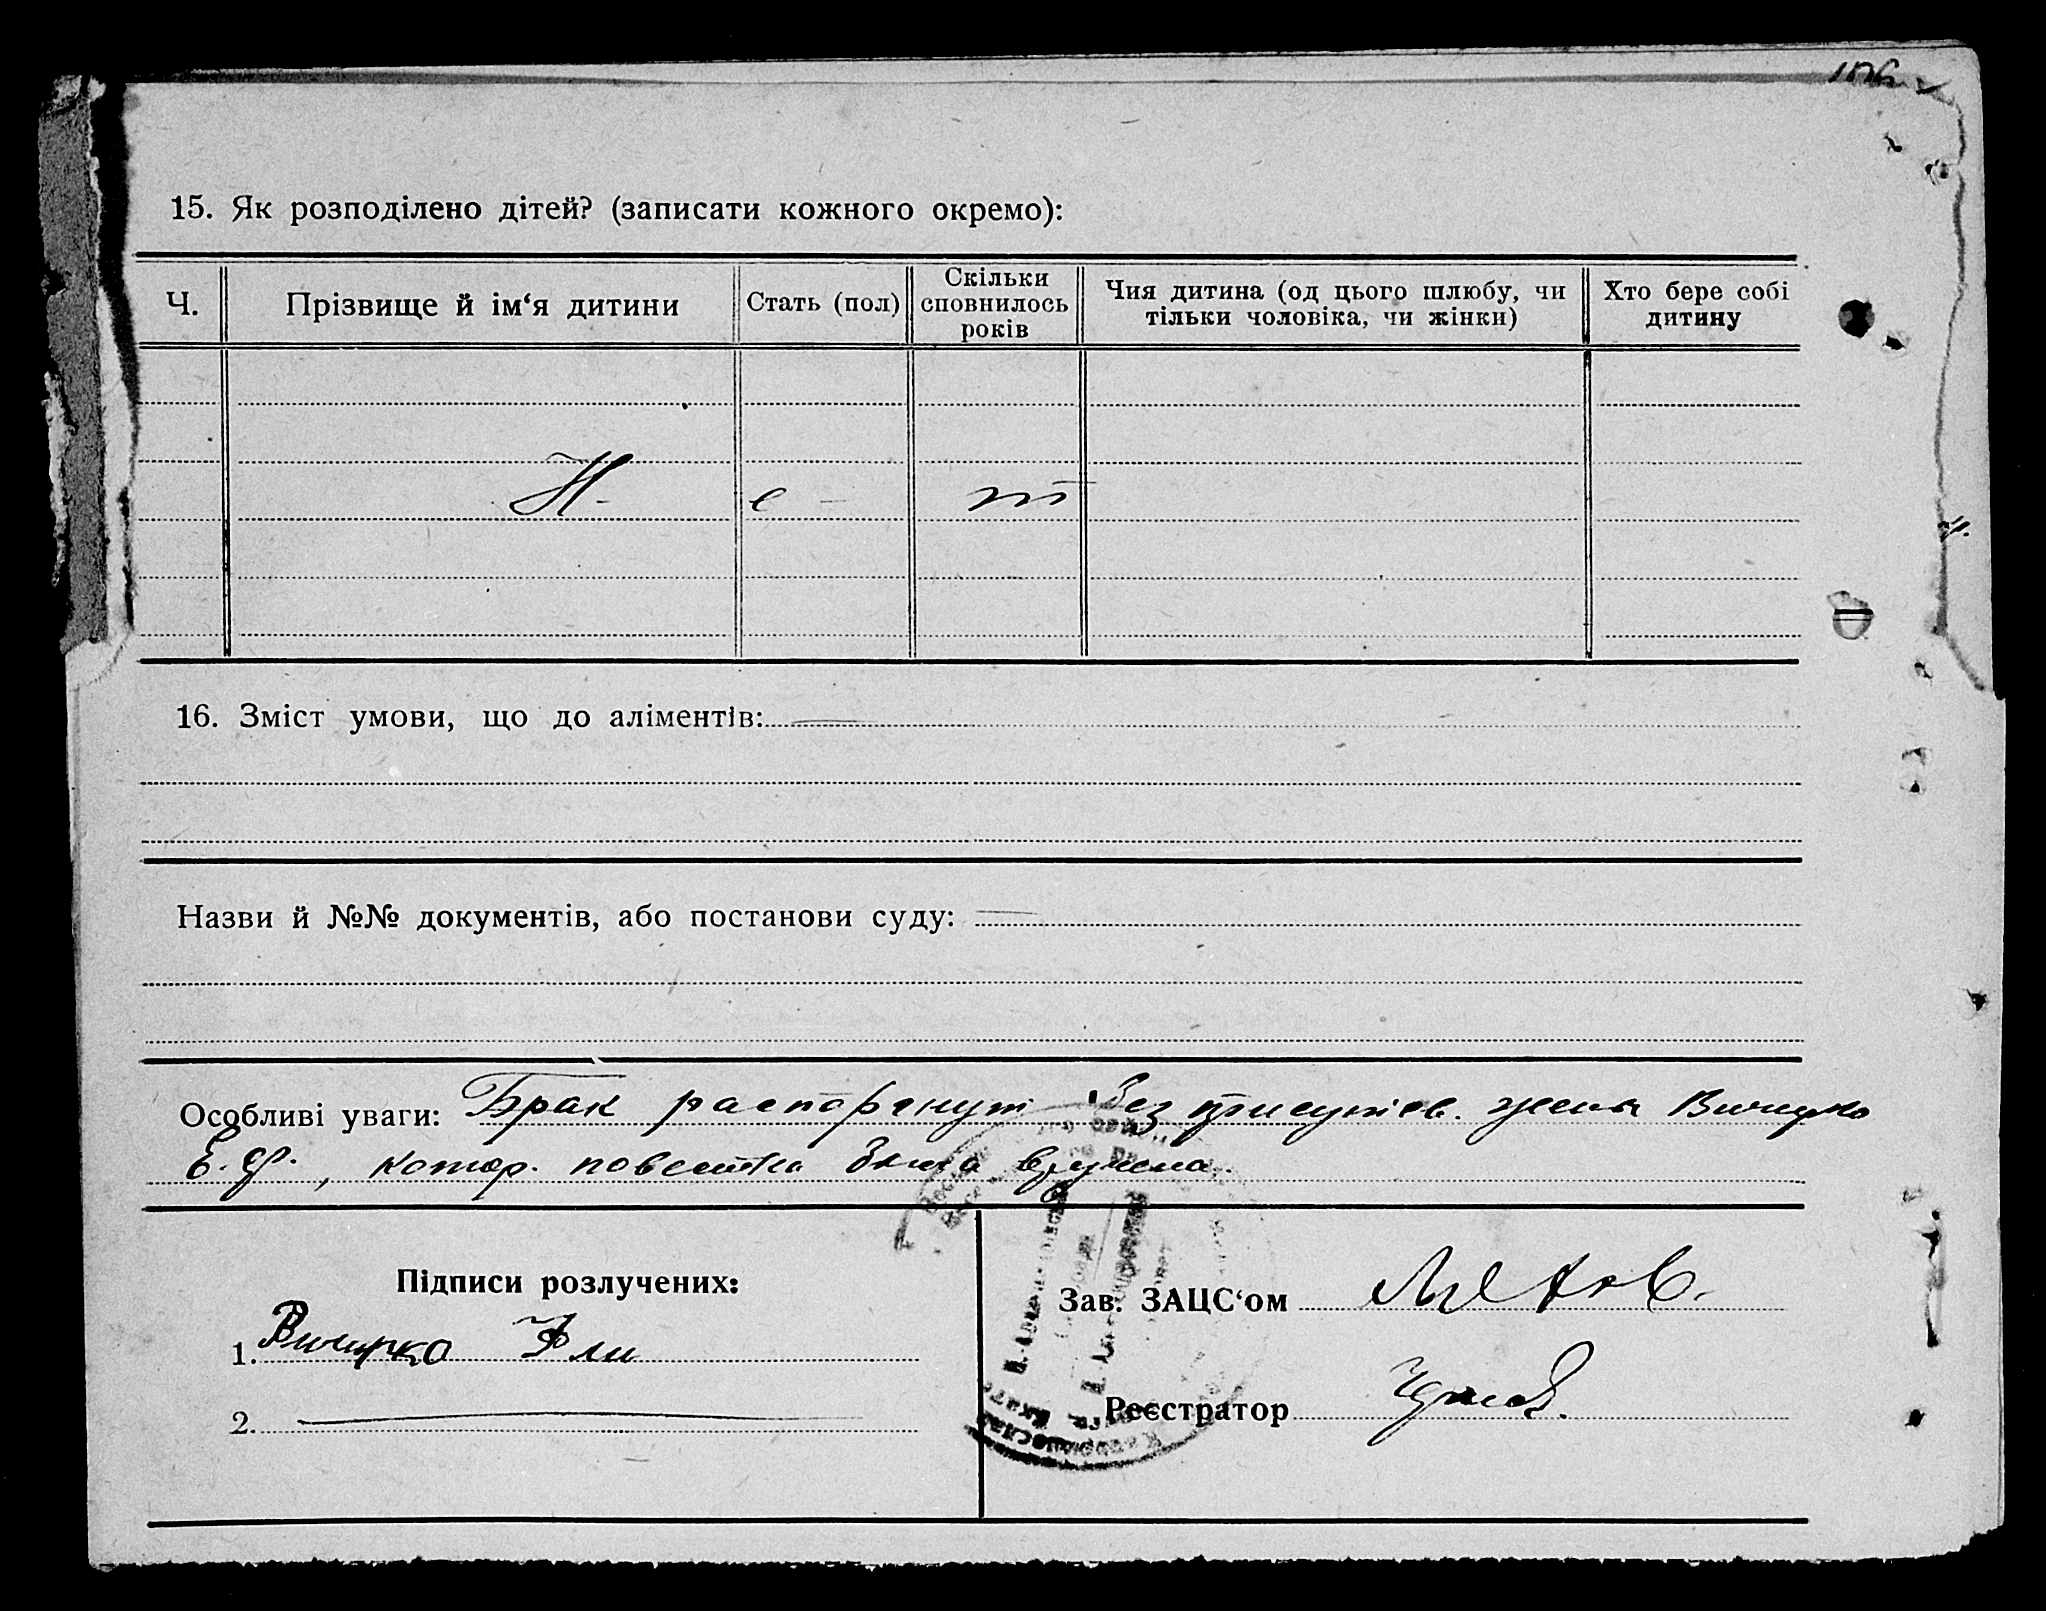 15. Як розподілено дітей? (записати кожного окремо):
Ч. Прізвище й ім‘я дитини Стать (пол) Скільки сповнилось років Чия дитина (од цього шлюбу, чи тільки чоловіка, чи жінки) Хто бере собі дитину
Н - е - т
16. Зміст умови, що до аліментів: —
Назви й №№ документів, або постанови суду: —
Особливі уваги: Брак расторгнут без присутств. жены
Е. Ф., котор. повестка была вручена.
Підписи розлучених:
1.
2. —
Зав. ЗАЦС‘ом
Реєстратор